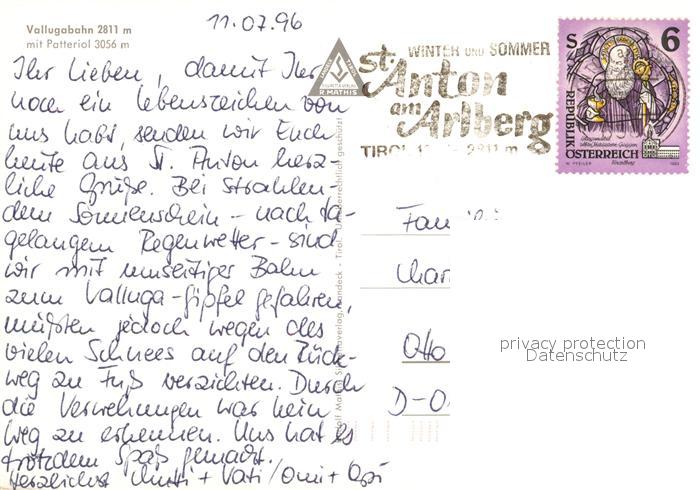 11.07.96
Vallugabahn 2811 m
mit Patteriol 3056 m
Ihr Lieben, damit Ihr
noch ein Lebenszeichen von
uns habt, senden wir Euch
heute aus St. Anton herz-
liche Grüße. Bei strahlen-
dem Sonnenschein - nach ta-
gelangem Regenwetter - sind
wir mit umseitiger Bahn
zum Valluga-Gipfel gefahren,
mußten jedoch wegen des
vielen Schnees auf den Rück-
weg zu Fuß verzichten. Durch
die Verwehungen war kein
Weg zu erkennen. Uns hat es
trotzdem Spaß gemacht.
Herzlichst Mutti + Vati / Omi + Opi
R. MATHIS
WINTER UND SOMMER
St.
Anton
am
Arlberg
TIROL 2811 m
S 6
REPUBLIK
ÖSTERREICH
Fam
Char
Otto
D-O
privacy protection
Datenschutz